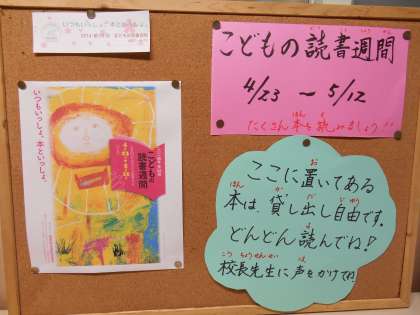 いつもいっしょ、本といっしょ。
こどもの読書週間
4/23 ～ 5/12
たくさん本を読みましょう
いつもいっしょ、本といっしょ。
こどもの
読書週間
ここに置いてある
本は、貸し出し自由です。
どんどん読んでね!
校長先生に声をかけてね。